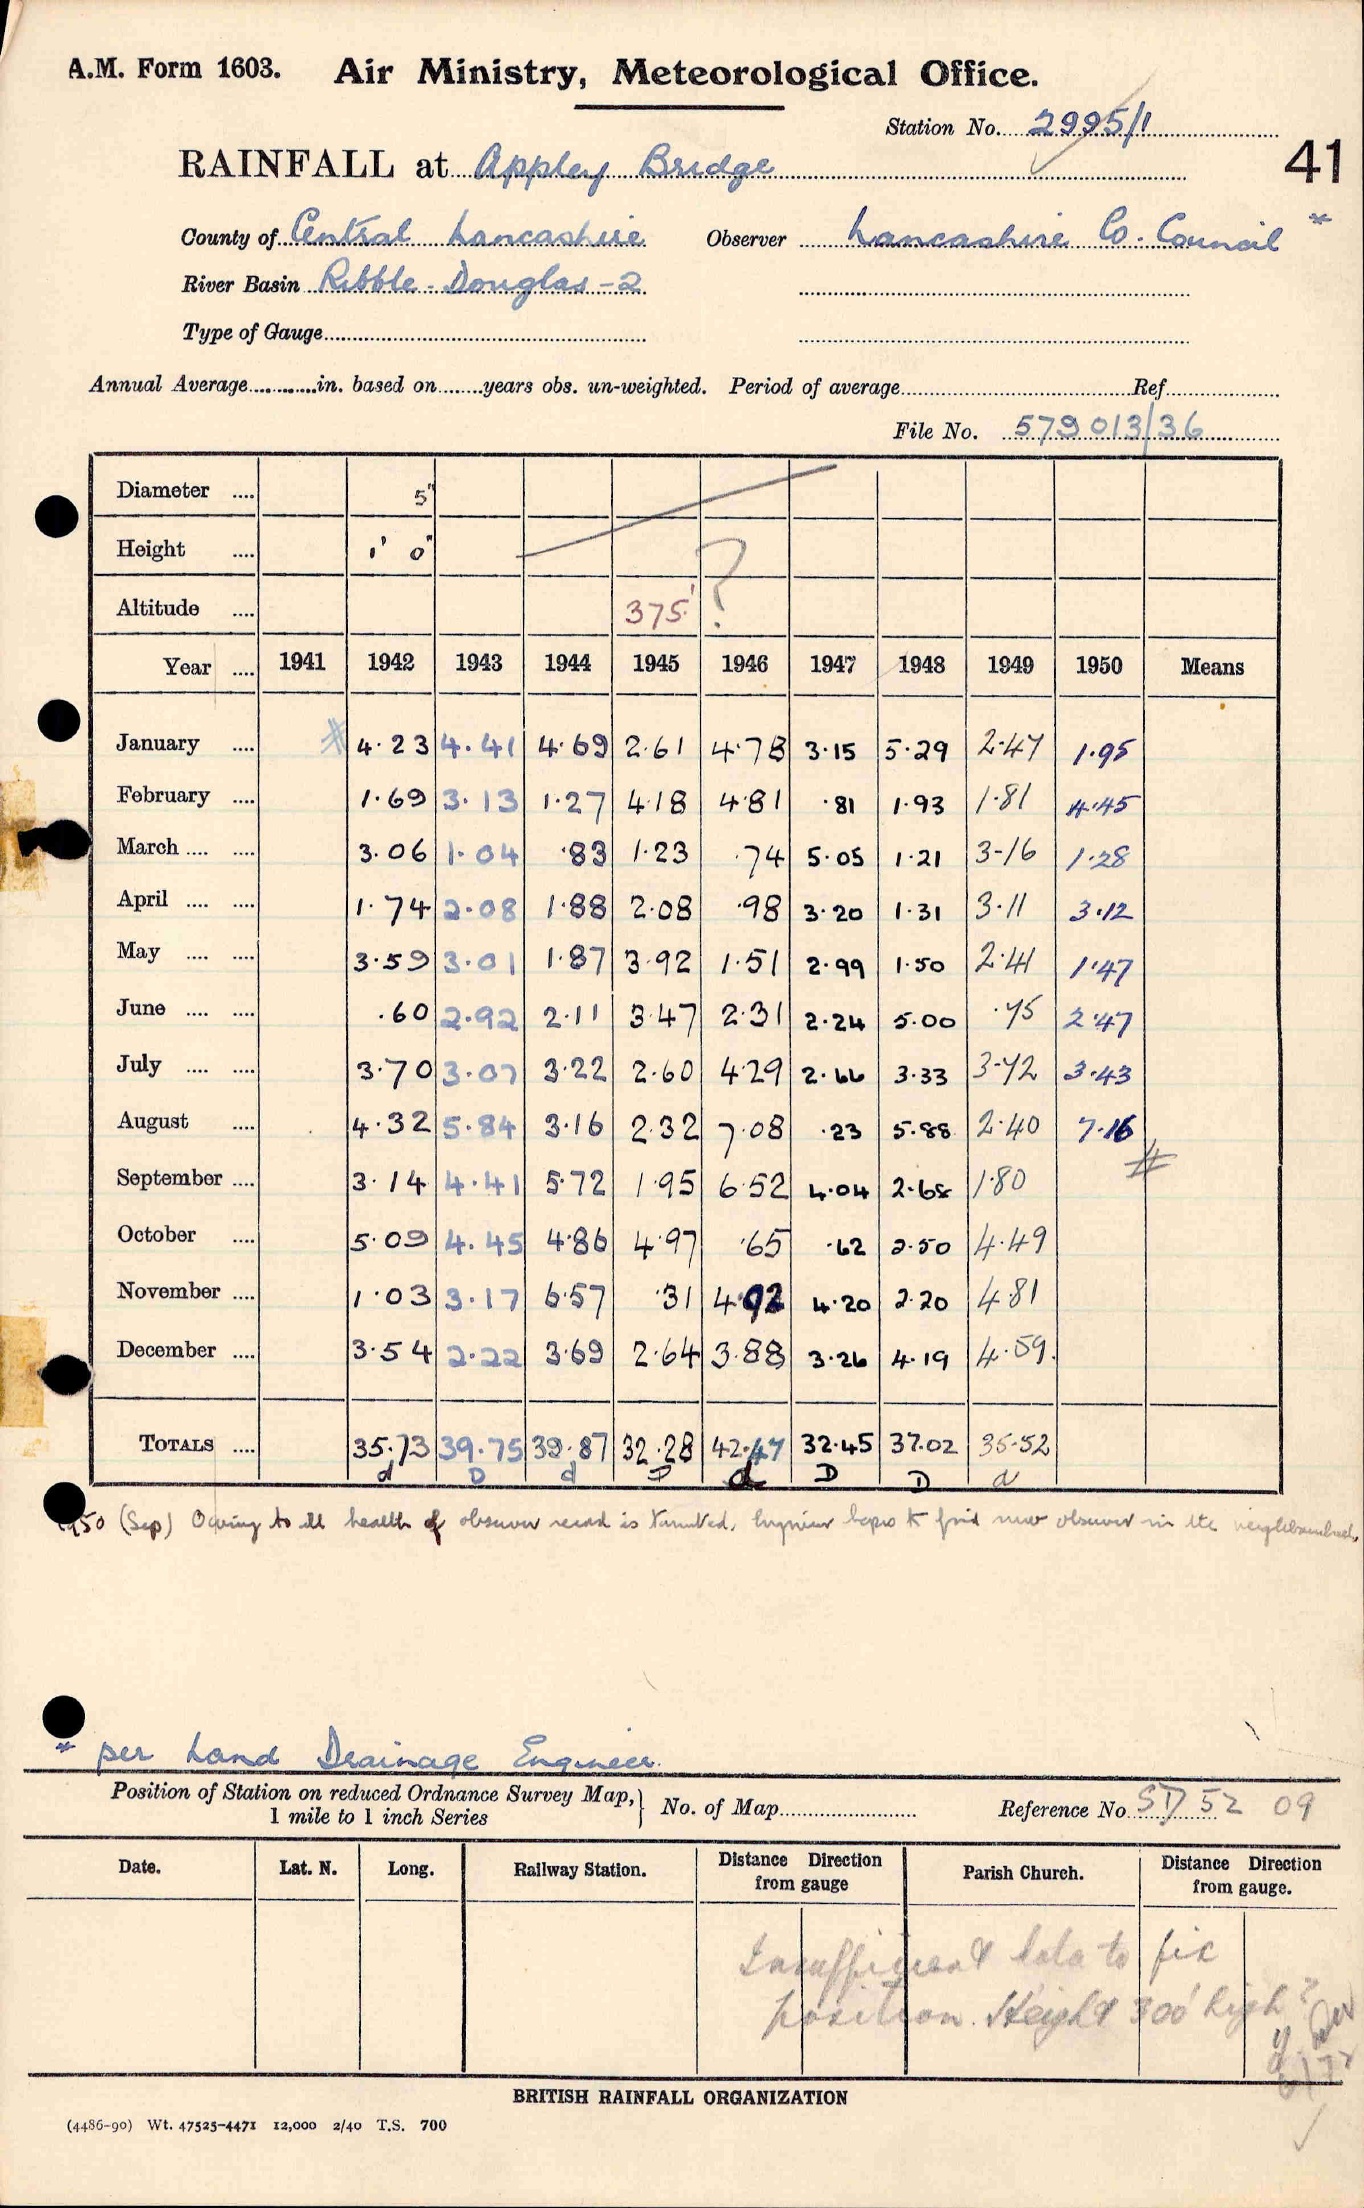 A.M. Form 1603. Air Ministry, Meteorological Office.
Station No. 2995/1
41
RAINFALL at Appley Bridge
County of Central Lancashire Observer Lancashire Co. Council *
River Basin Ribble - Douglas - 2
Type of Gauge
Annual Average in. based on years obs. un-weighted. Period of average Ref
File No. 579013/36
Diameter 5"
Height 1' 0"
Altitude 375' ?
Year 1941 1942 1943 1944 1945 1946 1947 1948 1949 1950 Means
January # 4.23 4.41 4.69 2.61 4.78 3.15 5.29 2.47 1.95
February 1.69 3.13 1.27 4.18 4.81 .81 1.93 1.81 4.45
March 3.06 1.04 .83 1.23 .74 5.05 1.21 3.16 1.28
April 1.74 2.08 1.88 2.08 .98 3.20 1.31 3.11 3.12
May 3.59 3.01 1.87 3.92 1.51 2.99 1.50 2.41 1.47
June .60 2.92 2.11 3.47 2.31 2.24 5.00 .75 2.47
July 3.70 3.07 3.22 2.60 4.29 2.66 3.33 3.72 3.43
August 4.32 5.84 3.16 2.32 7.08 .23 5.88 2.40 7.16 #
September 3.14 4.41 5.72 1.95 6.52 4.04 2.68 1.80
October 5.09 4.45 4.86 4.97 .65 .62 2.50 4.49
November 1.03 3.17 6.57 .31 4.92 4.20 2.20 4.81
December 3.54 2.22 3.69 2.64 3.88 3.26 4.19 4.59
TOTALS 35.73 39.75 39.87 32.28 42.47 32.45 37.02 35.52
d D d d D D d
1950 (Sep) Owing to ill health of observer record is termin'ted. Engineer hopes to find new observer in the neighbourhood.
* per Land Drainage Engineer.
Position of Station on reduced Ordnance Survey Map, 1 mile to 1 inch Series } No. of Map Reference No SD 52 09
Date. Lat. N. Long. Railway Station. Distance Direction from gauge Parish Church. Distance Direction from gauge.
Insufficient data to fix
position. Height 300' high?
BRITISH RAINFALL ORGANIZATION
(4486-90) Wt. 47525-4471 12,000 2/40 T.S. 700